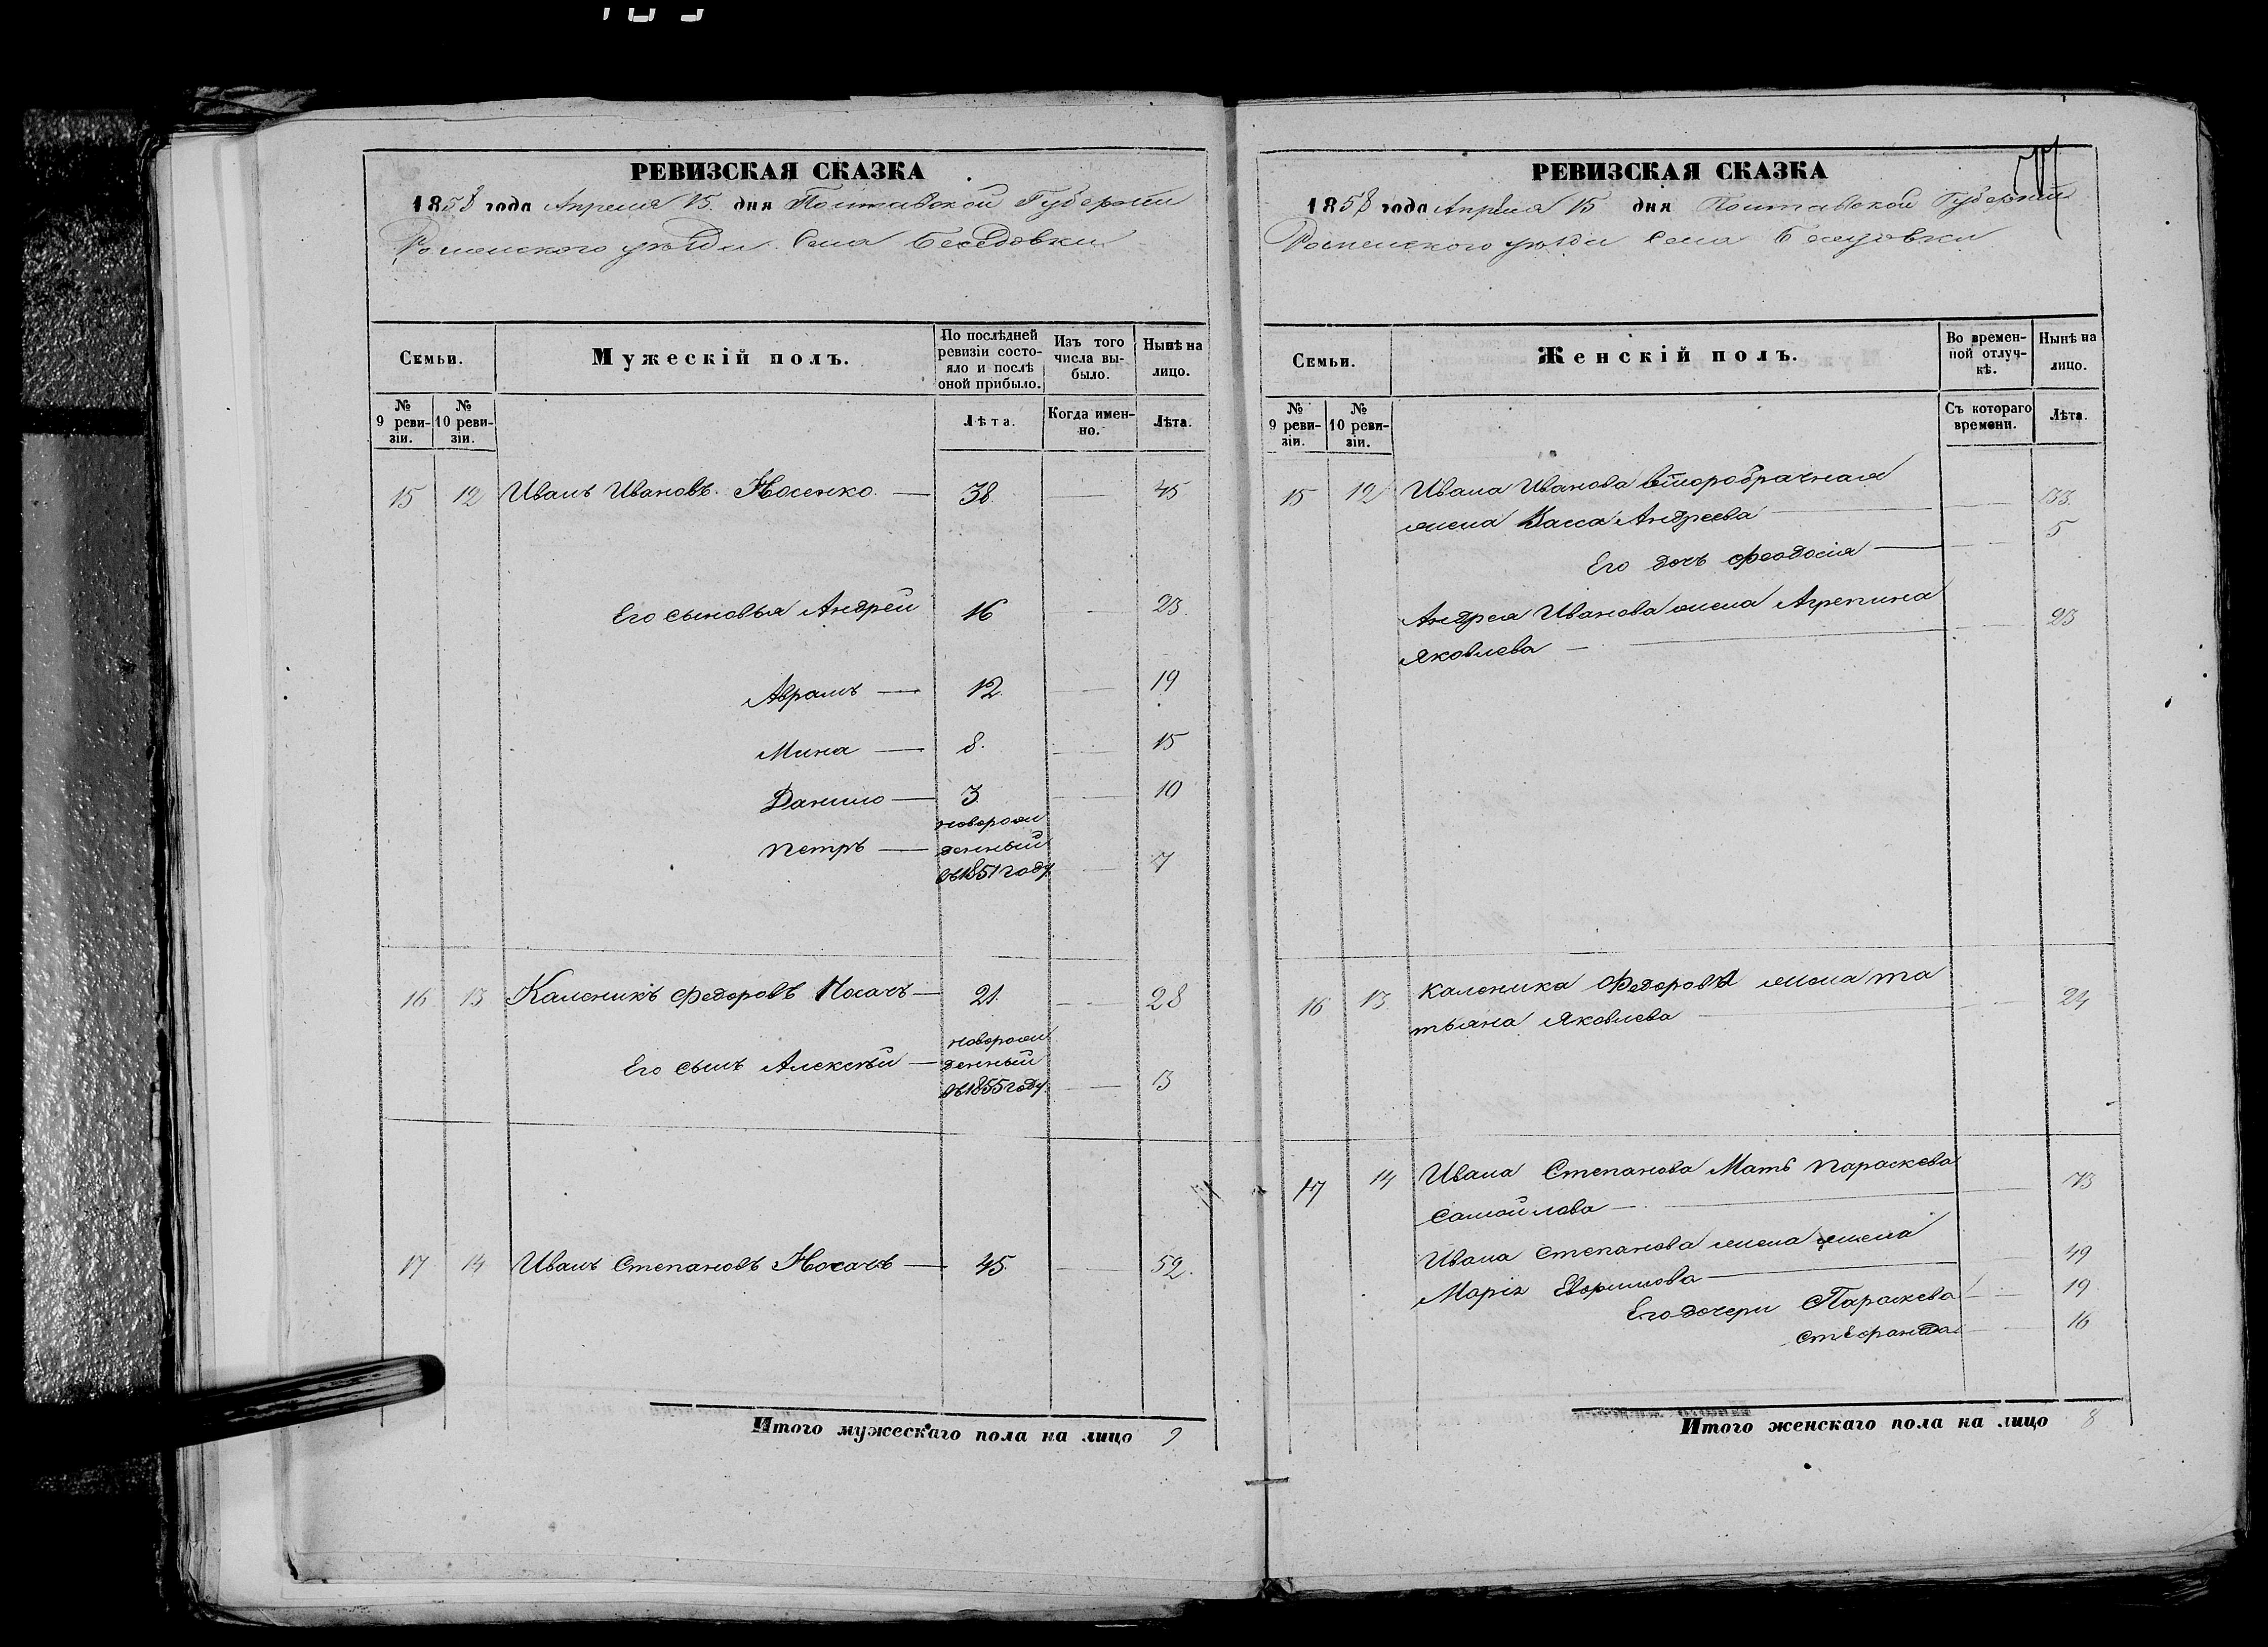 РЕВИЗСКАЯ СКАЗКА
1858 года Апреля 15. дня Полтавской Губернии
Роменского уезда. Села Беседовки
Семьи.
Мужескій полъ.
По послѣдней ревизіи состо-
яло и послѣ оной прибыло.
Изъ того числа вы-
было.
Нынѣ на лицо.
№ 9 реви-
зіи.
№ 10 реви-
зіи.
Лѣта.
Когда имен-
но.
Лѣта.
15 12 Иванъ Ивановъ Носенко. — 38. — 45
Его сыновья Андрей 16 — 23.
Аврамъ — 12. — 19
Мина — 8. — 15
Данило — 3. — 10
Петръ — новорож
денный
въ 1851 году — 7
16 13 Каленикъ Федоровъ Носачъ — 21. — 28
Его сынъ Алексѣй — новорож
денный
въ 1855 году — 3
17 14 Иванъ Степановъ Носачъ — 45. — 52.
Итого мужескаго пола на лицо 9
РЕВИЗСКАЯ СКАЗКА
1858 года Апреля 15 дня Полтавской Губернии
Роменского уезда Села Беседовки
Семьи.
Женскій полъ.
Во времен-
ной отлуч-
кѣ.
Нынѣ на лицо.
№ 9 реви-
зіи.
№ 10 реви-
зіи.
Съ котораго времени.
Лѣта.
15 12 Ивана Иванова второбрачная
жена Васса Андреева — 33.
Его дочь Феодосія — 5
Андрея Иванова жена Агрепина
Яковлева — 23
16 13. Каленика Федорова жена та
тьяна Яковлева — 24
17 14 Ивана Степанова Мать Параскева
Самойлова — 73
Ивана Степанова жена жена
Марія — 49
Его дочери Параскева — 19
16
Итого женскаго пола на лицо 8